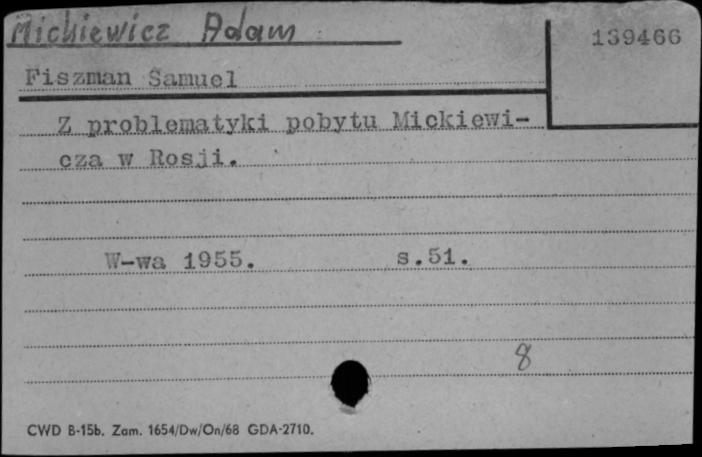 Mickiewicz Adam
139466
Fiszman Samuel
Z problematyki pobytu Mickiewi-
cza w Rosji.
W-wa 1955. s.51.
8
CWD B-15b. Zam. 1654/Dw/On/68 GDA-2710.